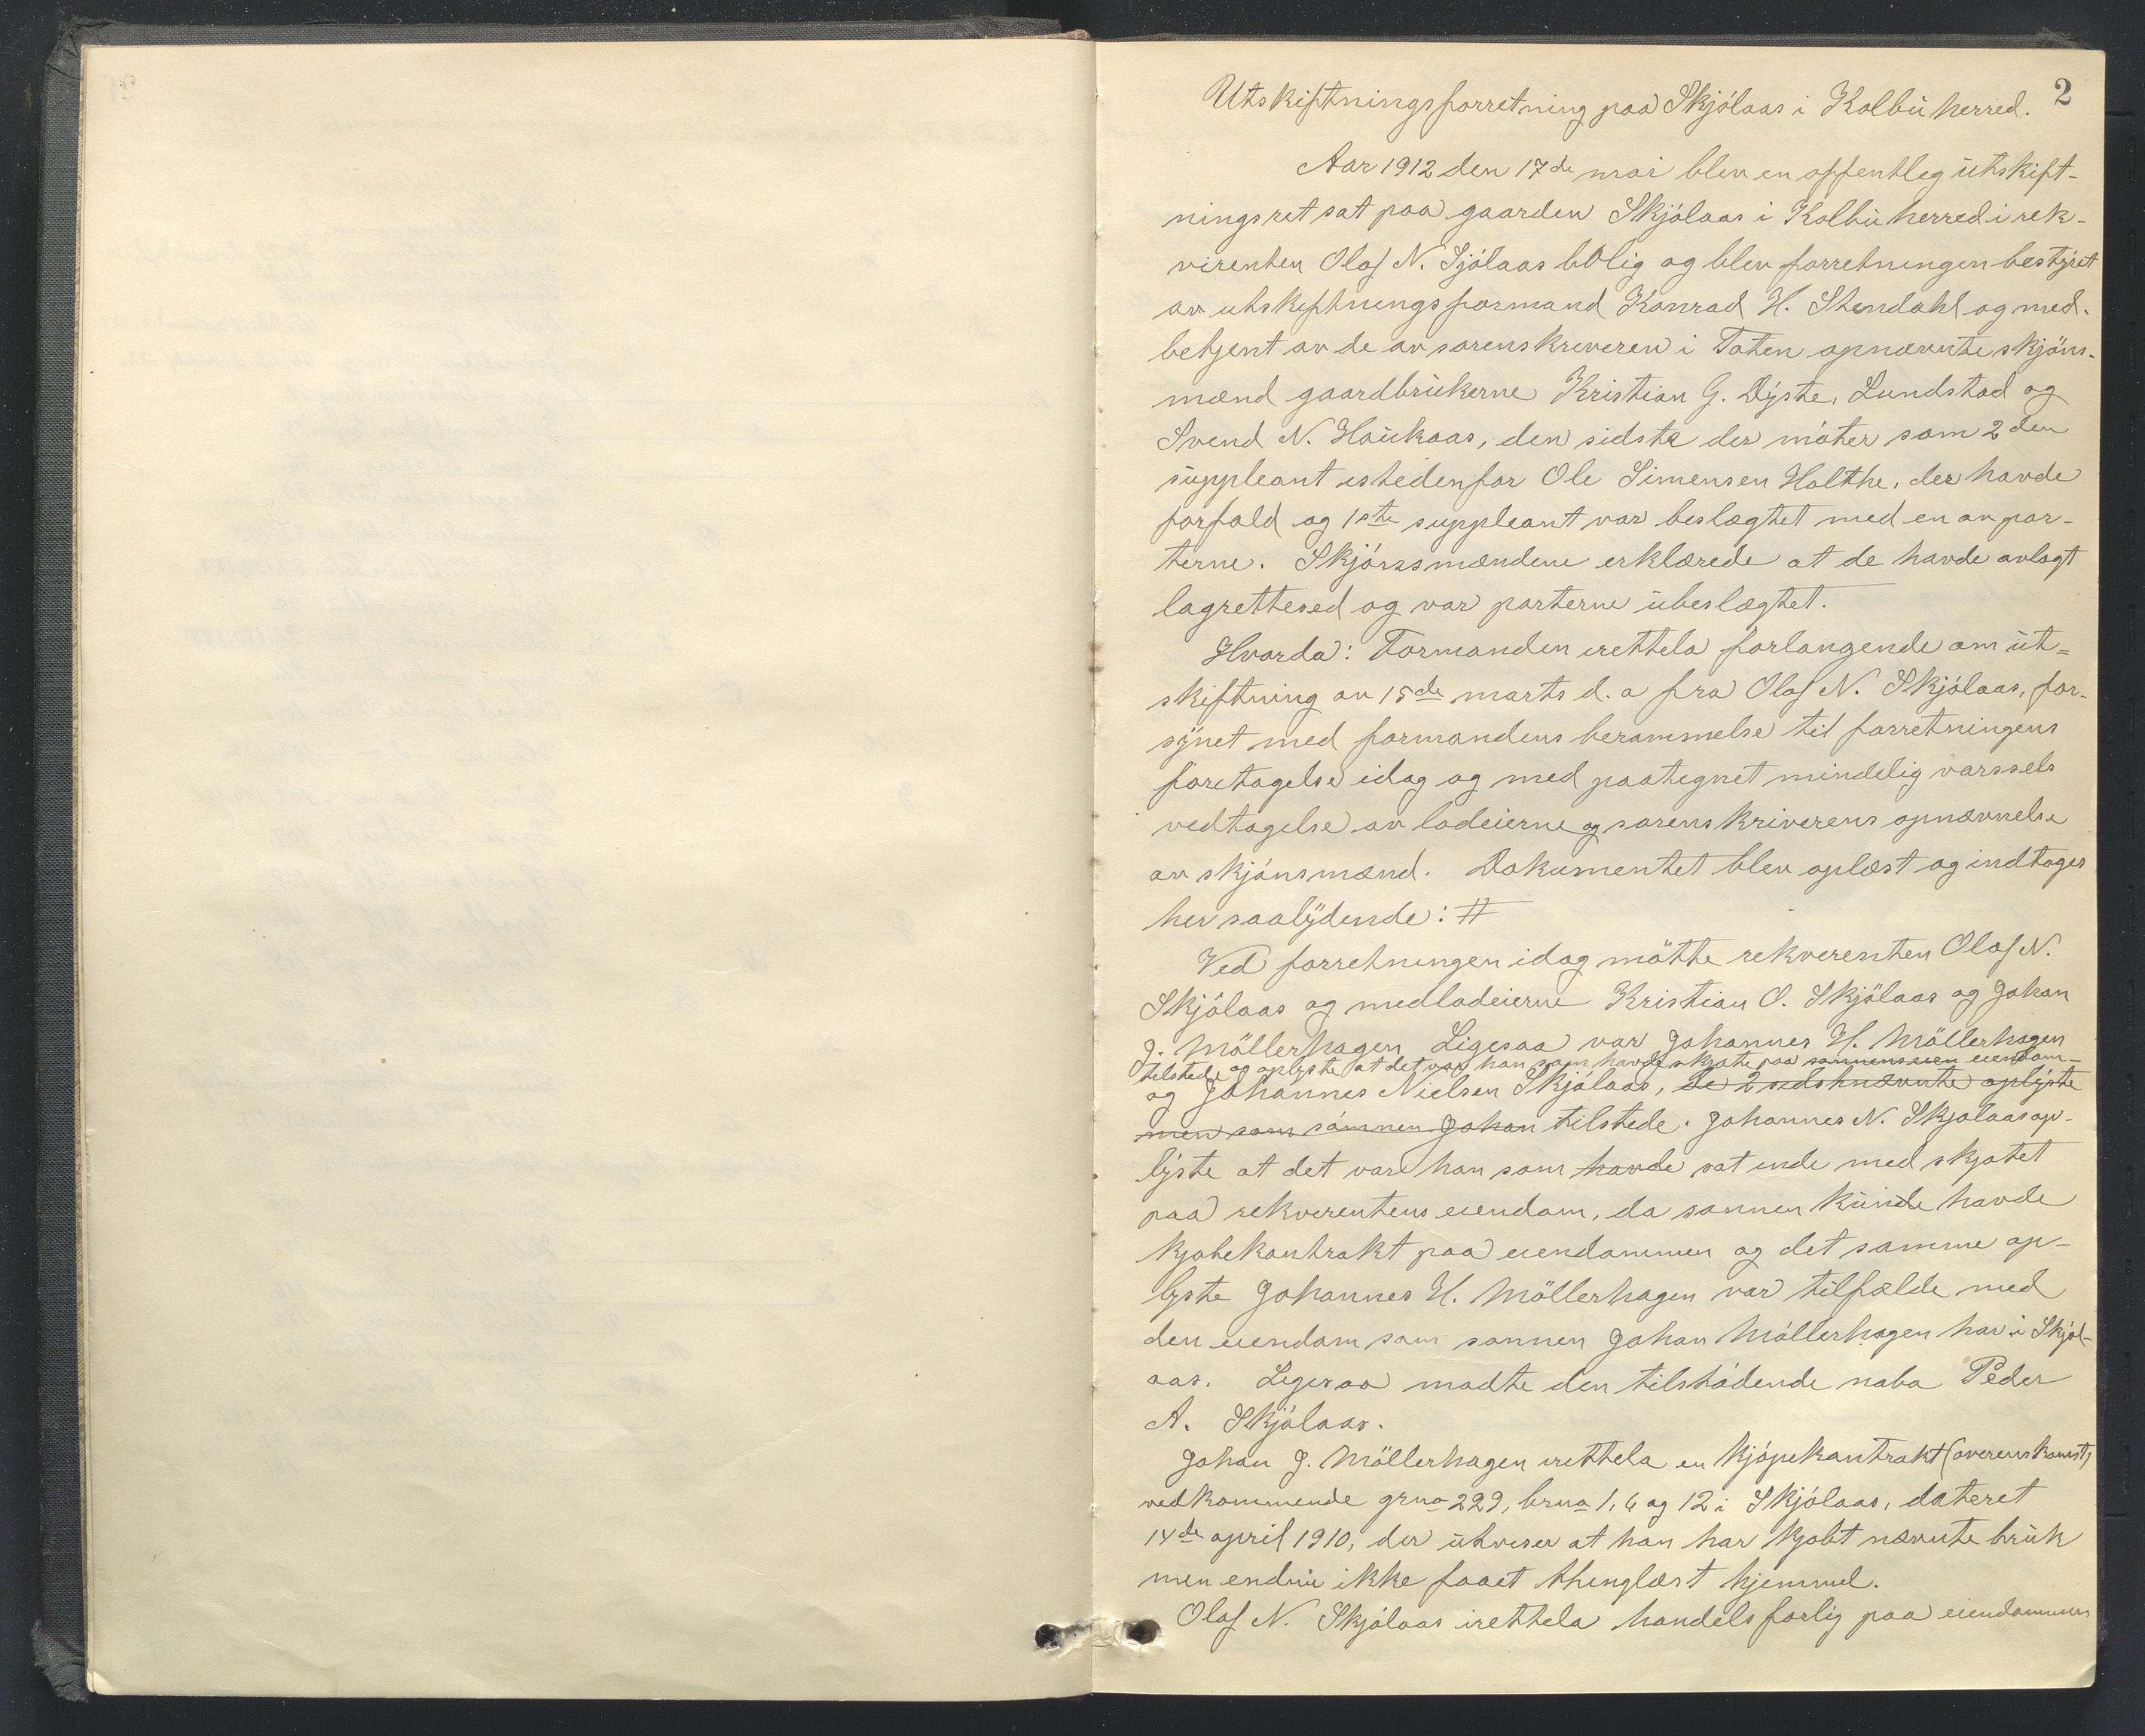 2
Utskiftningsforretning paa Skjólaas i Kolbu herred.
Aar 1912 den 17de mai blev en offentleg utskift-
ningsret sat paa gaarden Skjólaas i Kolbu herred i rek-
virenten Olaf N. Sjólaas bolig og blev forretningen bestyret
av utskiftningsformand Konrad H. Stendahl og med-
betjent av de av sorenskreveren i Toten opnævnte skjöns-
mænd gaardbrukerne Kristian G. Dyste, Lundstad og
Svend N. Haukaas, den sidste der móter som 2den
suppleant istedenfor Ole Simensen Holthe, der havde
forfald og 1ste suppleant var beslægtet med en av par-
terne. Skjónsmændene erklærede at de havde avlagt
lagretteed og var parterne ubeslægtet.
Hvorda: Formanden irettela forlangende om ut-
skiftning av 15de marts d. a fra Olaf N. Skjólaas, for-
synet med formandens berammelse til forretningens
foretagelse idag og med paategnet mindelig varssels
vedtagelse av lodeierne og sorenskriverens opnævnelse
av skjónsmænd. Dokumentet blev oplæst og indtages
her saalydende: #
Ved forretningen idag mötte rekverenten Olaf N.
Skjólaas og medlodeierne Kristian O. Skjólaas og Johan
J. Möllerhagen. Ligesaa var Johannes H. Möllerhagen
tilstede og oplyste at det var han som havde skjøte paa sønnens eien eiendom-
og Johannes Nielsen Skjólaas, de 2 sidstnævnte oplyste
men som sónnen Johan tilstede. Johannes N. Skjolaas op-
lyste at det var han som havde sat inde med skjøtet
paa rekverentens eiendom, da sønnen kunde havde
kjøbekontrakt paa eiendommen og det samme op-
lyste Johannes H. Möllerhagen var tilfælde med
den eiendom som sønnen Johan Móllerhagen har i Skjól-
aas. Ligesaa mødte den tilstódende nabo Peder
A. Skjólaas.
Johan J. Möllerhagen irettela en kjópekontrakt (overenskomst)
vedkommende grno 229, brno 1, 6 og 12 i Skjólaas, dateret
14de april 1910, der utviser at han har kjøbt nævnte bruk
men endnu ikke faaet thinglæst hjemmel.
Olaf N. Skjólaas irettela handelsforlig paa eiendommen